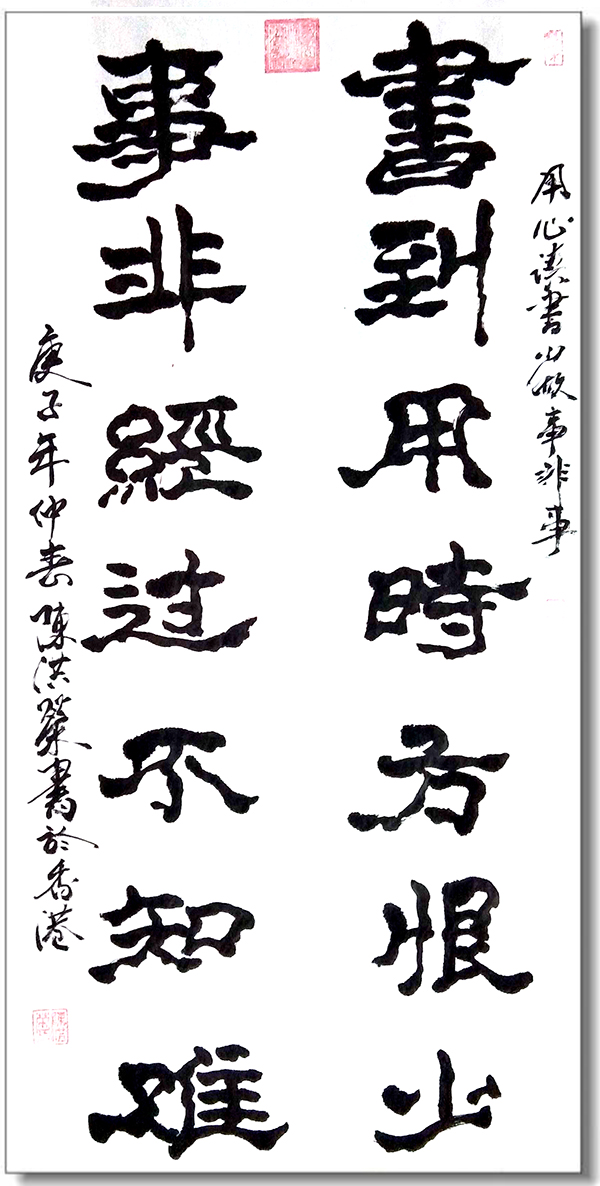 用心读書少做事非事
書到用時方恨少
事非經过不知难
庚子年仲春陳洪書於香港